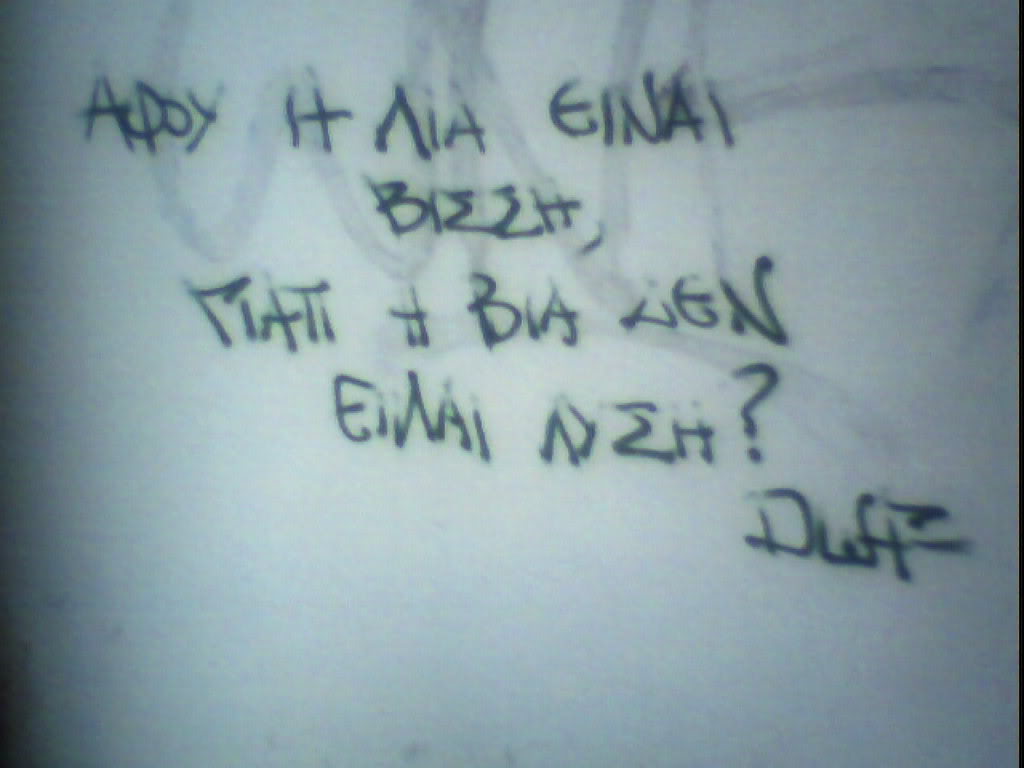 ΑΦΟΥ Η ΛΙΑ ΕΙΝΑΙ
ΒΙΣΣΗ,
ΓΙΑΤΙ Η ΒΙΑ ΔΕΝ
ΕΙΝΑΙ ΛΥΣΗ?
Duff